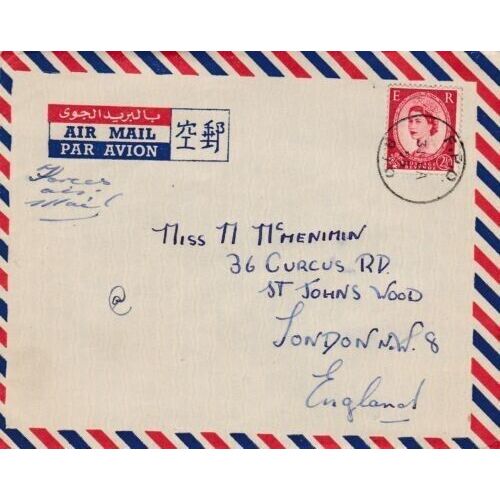 بالبريد الجوى
AIR MAIL
PAR AVION
空郵
E R
2½
Forces
air
Mail
MISS M McMENIMIN
36 CURCUS RD.
ST JOHNS WOOD
LONDON N.W. 8
England